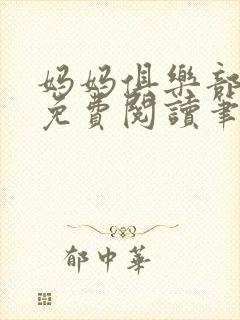 妈妈俱樂部
免費閱讀筆
郁中華